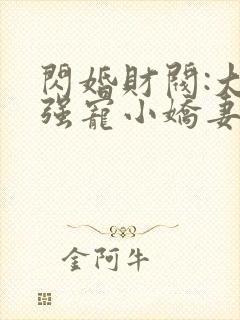 閃婚財閥:大
强寵小嬌妻
金阿牛